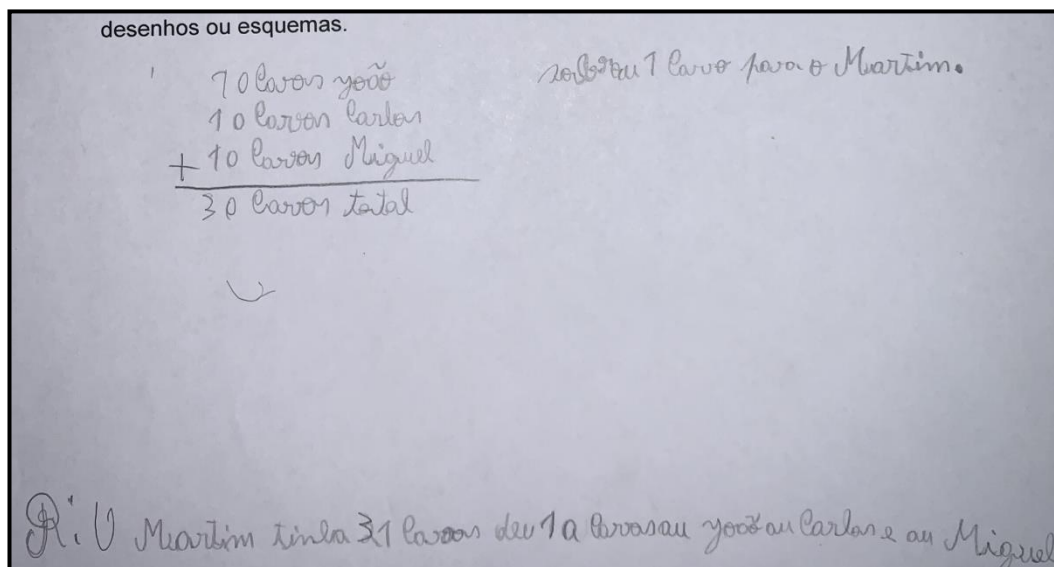 desenhos ou esquemas.
10 Caros João
10 Caros Carlos
+ 10 Caros Miguel
30 Caros total
sobrou 1 Caro para o Martim.
R: O Martim tinha 31 Caros deu 10 Caros au João au Carlos e au Miguel